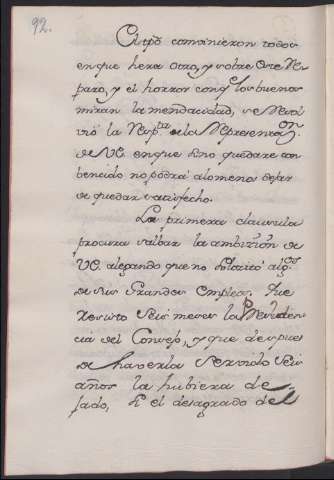 92.
El tpō combinieron todos
en que hera otro, y sobre este Re
paro, y el horror con q̃ los buenos
miran la mendacidad, se Resol
vió la Respta de la Representaon
de VE en que si no quedare con
bencido no podrá alomenos dejar
de quedar satisfecho.
La primera clausula
procura salbar la ambizion de
VE alegando que no solicitó algos
de sus Grandes empleos. Fue
seis meses la Presiden
cia del Consejo, y que despues
de haverla servido seis
años la hubiera de
jado, si el desagrado del